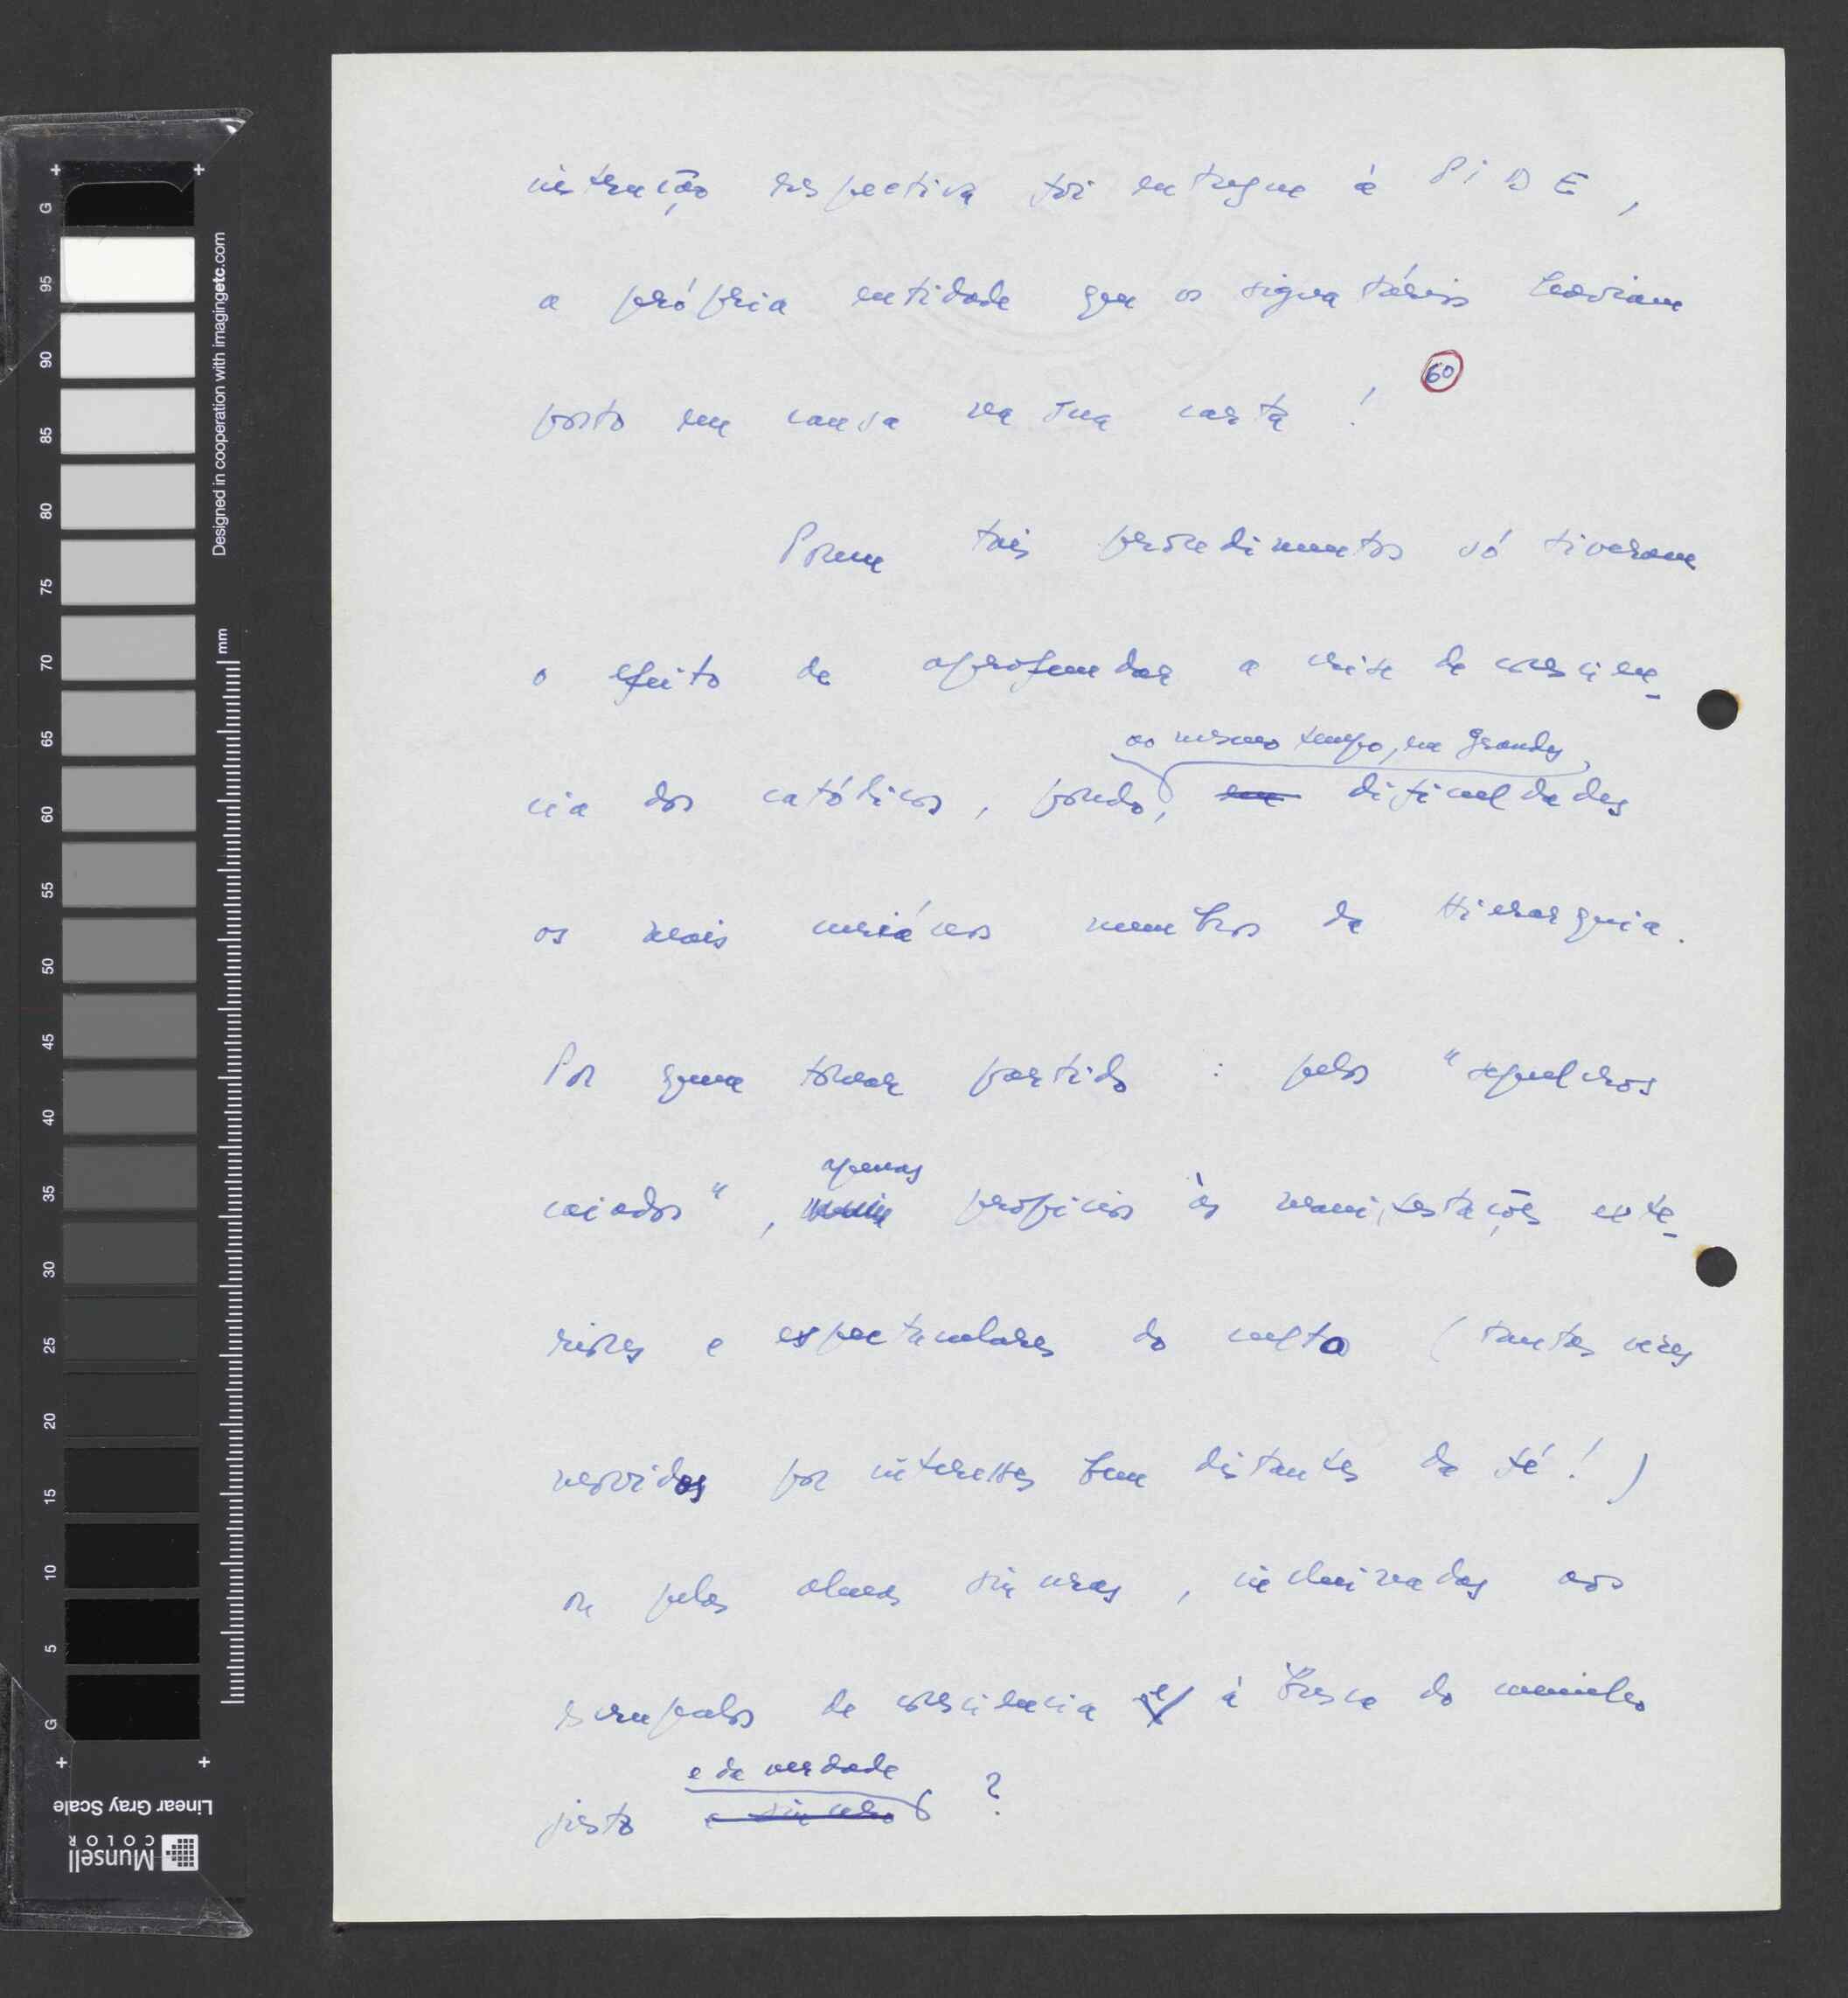 instrução respectiva foi entregue à PIDE,
a própria entidade que os signatários haviam
posto em causa na sua carta! 60
Porem tais procedimentos só tiveram
o efeito de aprofundar a crise de consciên-
ao mesmo tempo, em grandes
cia dos católicos, pondo, em dificuldades
os mais membros da Hierarquia.
Por quem tomar partido: pelos "sepulcros
apenas
caiados", propicios às manifestações exte-
riores e espectaculares do culto (tantas vezes
movidas por interesses bem distantes da fé!)
ou pelas almas sinceras, inclinadas aos
escrupulos de consciencia e à busca do caminho
e da verdade
justo e sincero ?
G
95
90
85
80
75
70
65
60
55
50
45
40
35
30
25
20
15
10
5
G
Designed in cooperation with imagingetc.com
mm
Linear Gray Scale
Munsell
COLOR